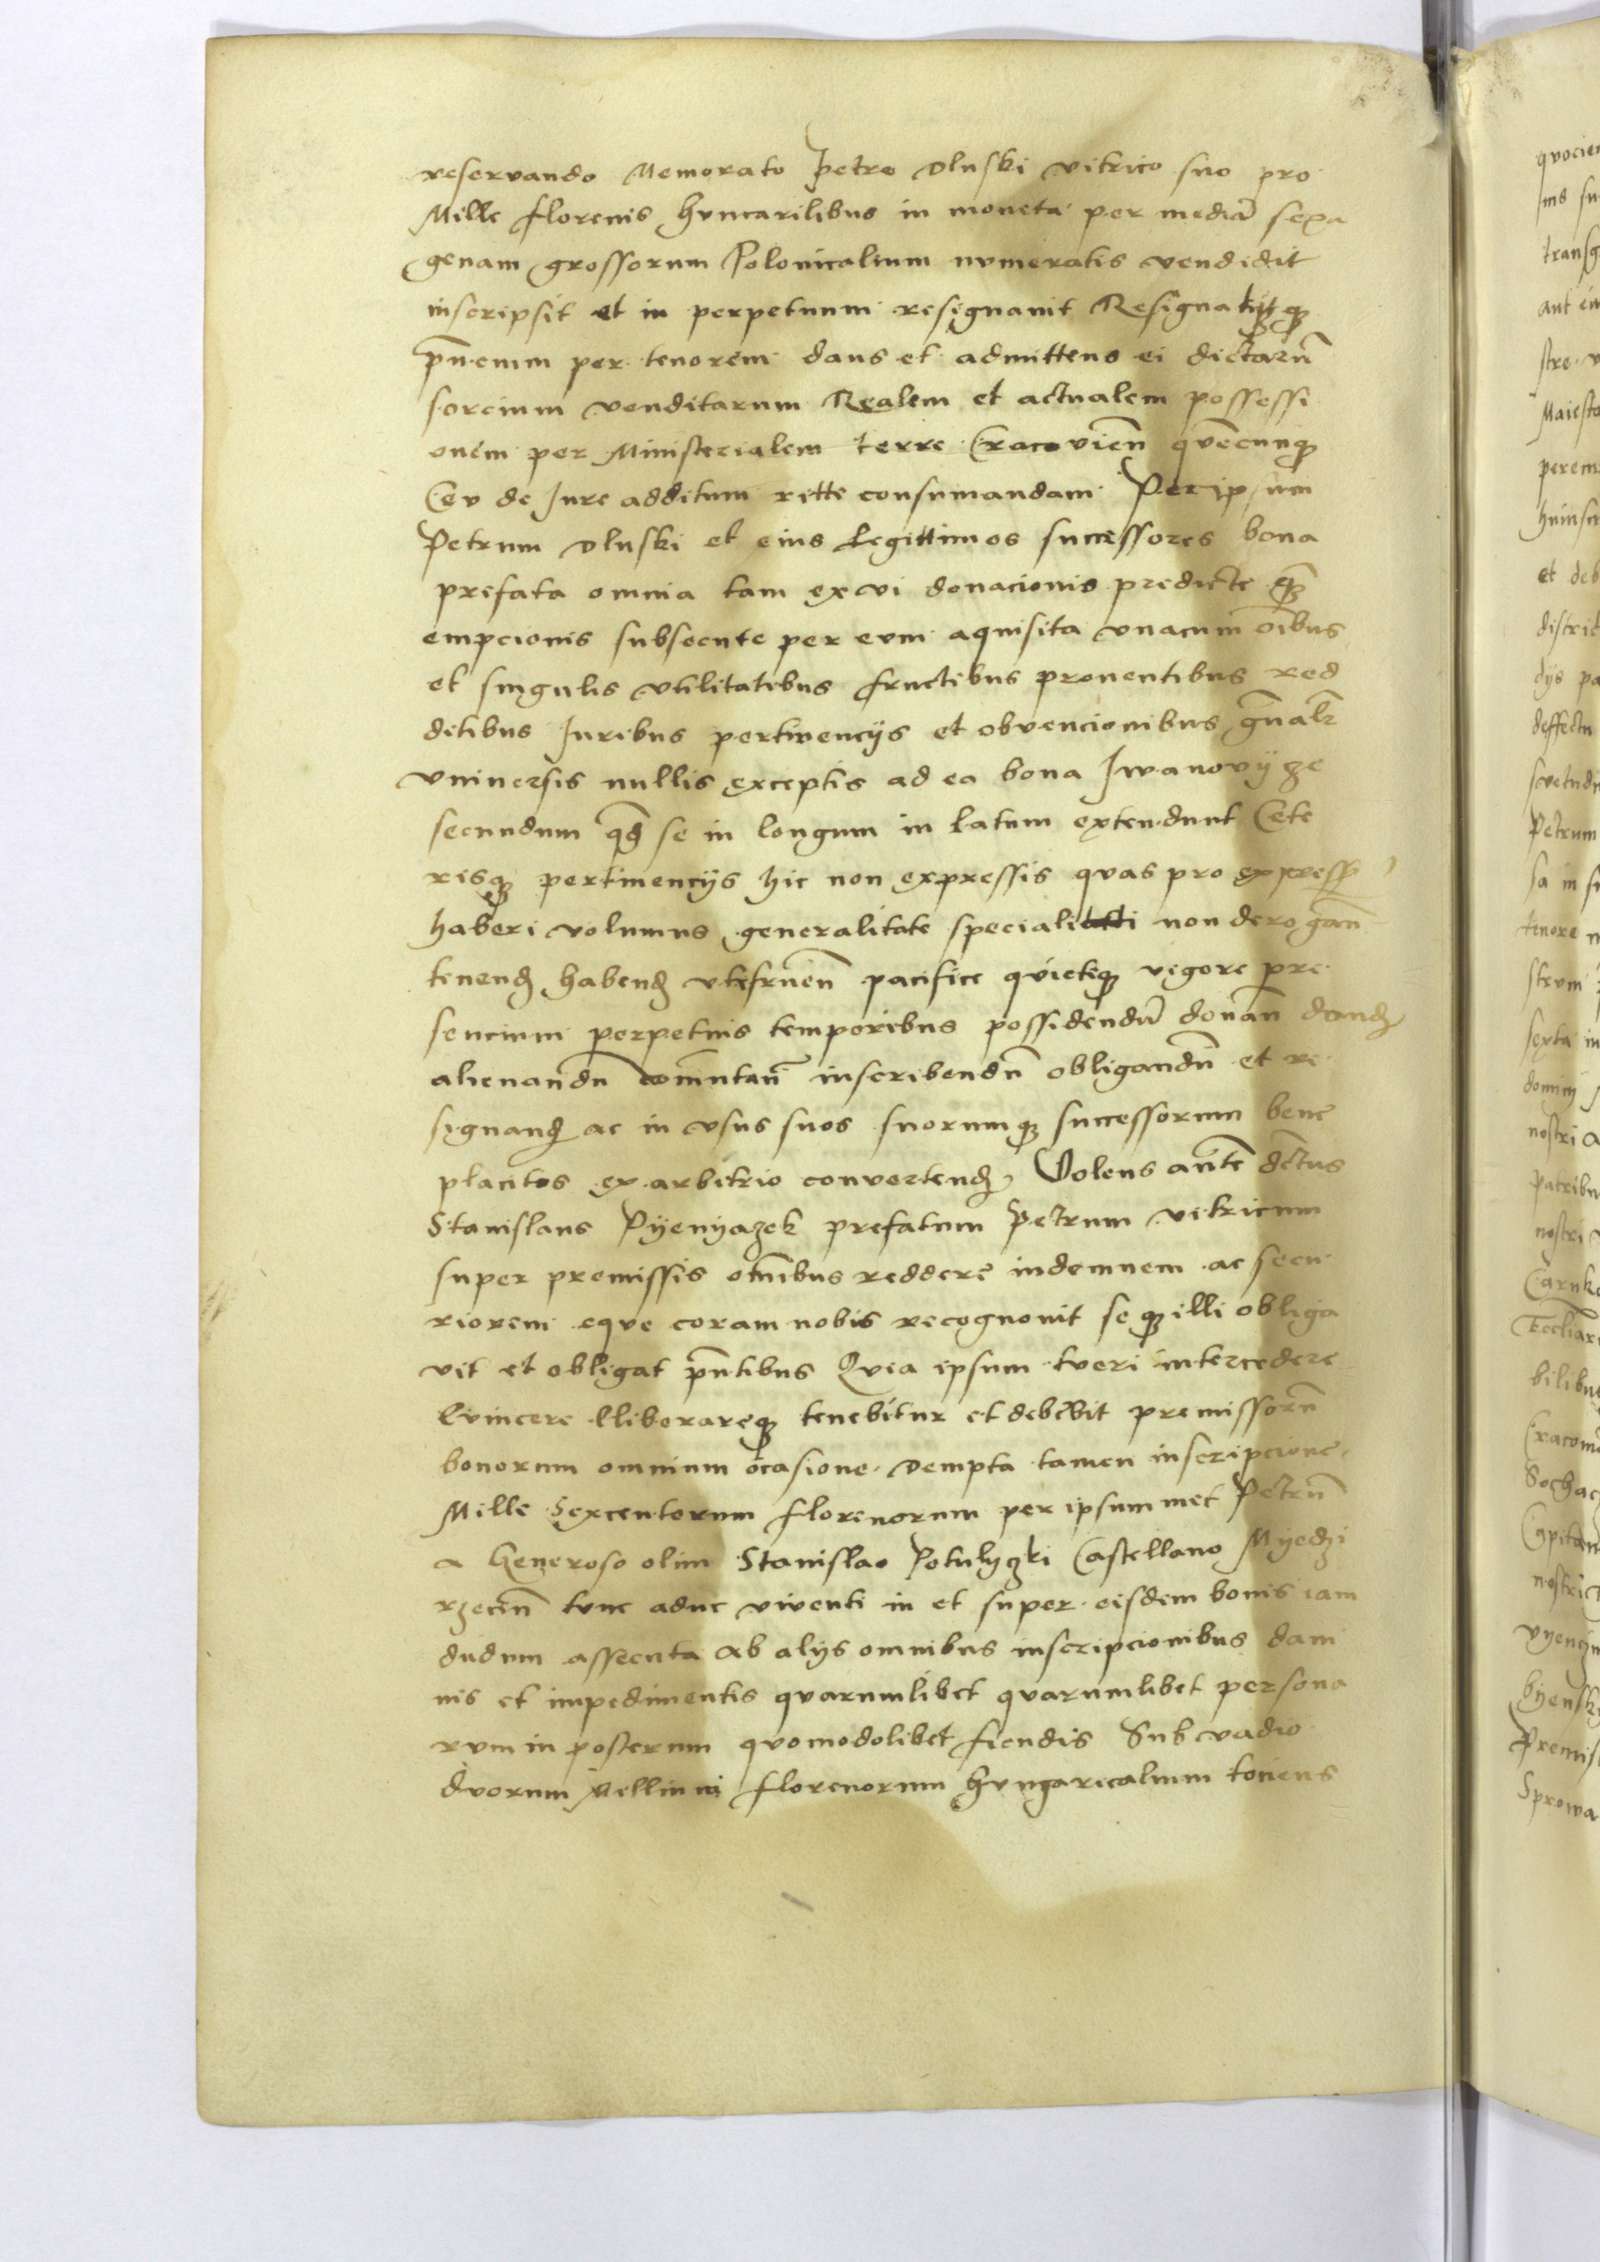 reservando Memorato Petro Dluski vitrico suo pro
Mille florenis huncarilibus in moneta per mediā sexa
genam grossorum Polonicalium numeratis vendidit
inscripsit et in perpetuum resignauit Resignatqꝫ
pn̄cium per tenorem dans et admittens ei dictarū
sorcium venditarum Realem et actualem possessi
onem per Ministerialem terre Cracovien̄ quēcunqꝫ
Ceu de Iure additum ritte consumandam Per ipsum
Petrum Dluski et eius Legittimos successores bona
prefata omnia tam ex vi donacionis predicte qꝫ̄
empcionis subsecute per eum aquisita vnacum oībus
et singulis vtilitatibus fructibus prouentibus red
ditibus Iuribus pertinencijs et obvencionibus gn̄alr̄
vniuersis nullis exceptis ad ea bona Iwanovijcze
secundum qd̄ se in longum in latum extendunt Cete
risqꝫ pertinencijs hic non expressis quas pro express
haberi volumus generalitate speciali non derogan̄
tenend habend vtifruen̄ pacifice quieteqꝫ vigore pre
sencium perpetuis temporibus possidendū donan̄ dand
alienandū comūtan̄ inscribendū obligandū et re
signand ac in vsus suos suorumqꝫ successorum bene
placitos ex arbitrio convertend Volens an̄te dc̄tus
Stanislaus Pyenyazek prefatum Petrum vitricum
super premissis om̄ibus reddere indemnem ac secu
riorem eque coram nobis recognouit seqꝫ illi obliga
vit et obligat pn̄tibus Quia ipsum tveri intercedere
Evincere lliborareqꝫ tenebitur et debebit premissorū
bonorum omnium ocasione Dempta tamen inscripcione
Mille Sexcentorum florenorum per ipsummet Petrū
a Generoso olim Stanislao Potulyczki Castellano Myedzi
rzecin̄ tunc aduc viventi in et super eisdem bonis iam
dudum assecuta Ab alijs omnibus inscripcionibus dam
nis et impedimentis quarumlibet quarumlibet persona
rum in posterum quomodolibet fiendis Sub vadio
duorum Millium florenorum hungaricalium toiens